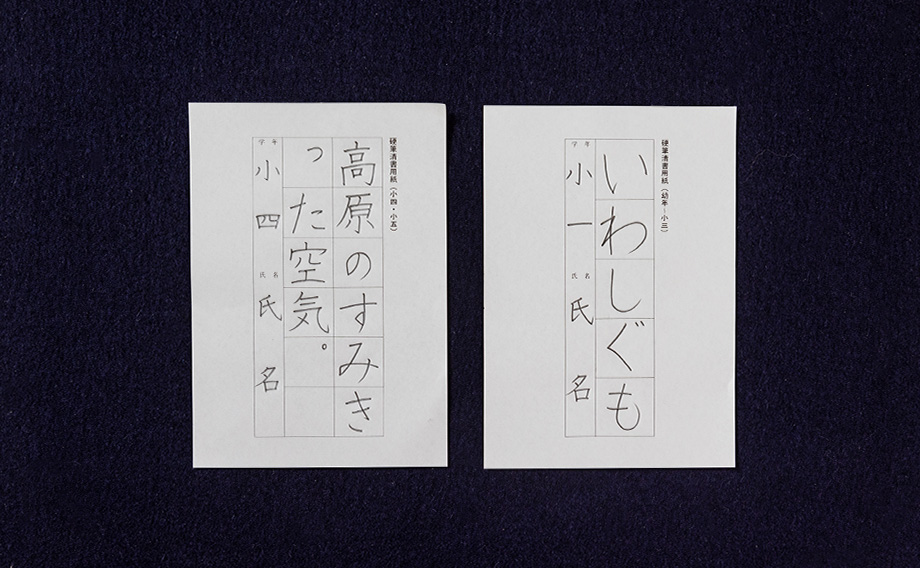 硬筆清書用紙(小四・小五)
高原のすみき
った空気。
学年 小四 氏名 氏名
硬筆清書用紙(幼年–小三)
いわしぐも
学年 小一 氏名 氏名